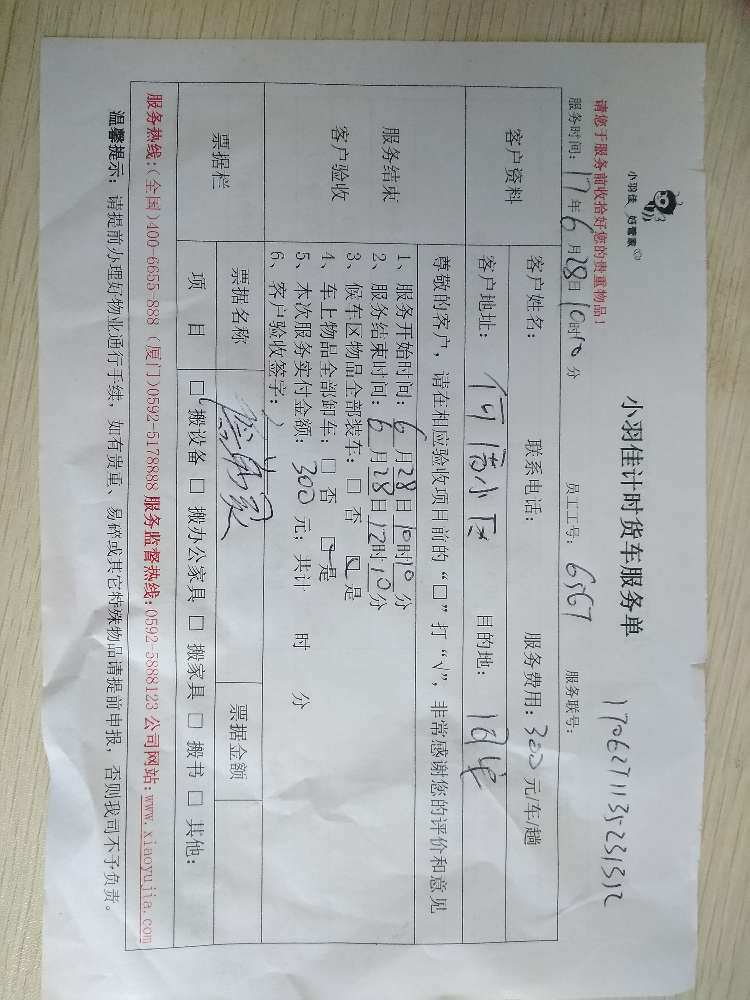 小羽佳 好管家
小羽佳计时货车服务单
请您于服务前收拾好您的贵重物品！
服务时间：17年6月28日10时10分 员工工号：6567 服务联号：
客户资料 客户姓名： 联系电话： 服务费用：300元/车/趟
客户地址： 小区 目的地：
服务结束
客户验收
尊敬的客户，请在相应验收项目前的“□”打“√”，非常感谢您的评价和意见
1、服务开始时间：6月28日10时10分
2、服务结束时间：6月28日12时10分
3、候车区物品全部装车：□否 □是
4、车上物品全部卸车：□否 □是
5、本次服务实付金额：300元；共计 时 分
6、客户验收签字：
票据栏 票据名称 票据金额
项 目 □搬设备 □搬办公家具 □搬家具 □搬书 □其他：
服务热线：(全国)400-6655-888 (厦门)0592-5178888 服务监督热线：0592-5888123 公司网站：www.xiaoyujia.com
温馨提示：请提前办理好物业通行手续，如有贵重、易碎或其它特殊物品请提前申报，否则我司不予负责。